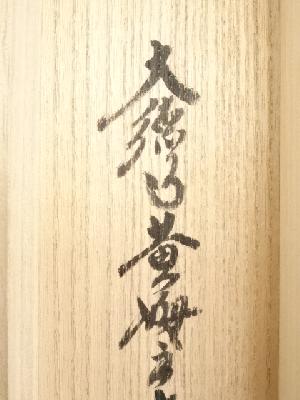 大徳寺黄梅